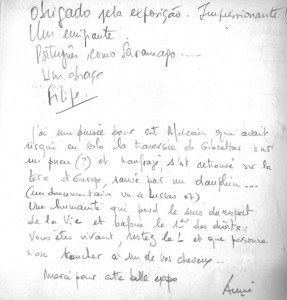 Obrigado pela exposição. Impressionante!
Um emigrante.
Português, como Saramago......
Um abraço
Filipe.
J'ai une pensée pour cet Africain qui ayant
risqué en solo la traversée de Gibraltar sur
un pneu (?) et naufragé, s'est retrouvé sur la
terre d'Europe, sauvé par un dauphin...
(un documentaire vu à Lussas 07)
Une humanité qui perd le sens du respect
de la Vie et bafoue le 1er des droits:
Vous êtes vivant, restez le! et que personne
touche à un de vos cheveux..
Merci pour cette belle expo
Annie